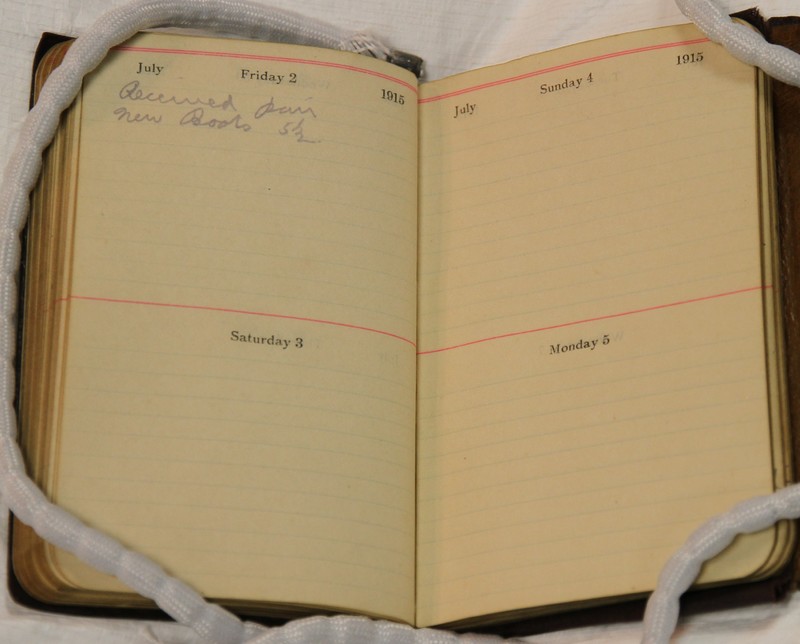 July
Friday 2
1915
Received pair
new Boots 5½
Saturday 3
July
Sunday 4
1915
Monday 5